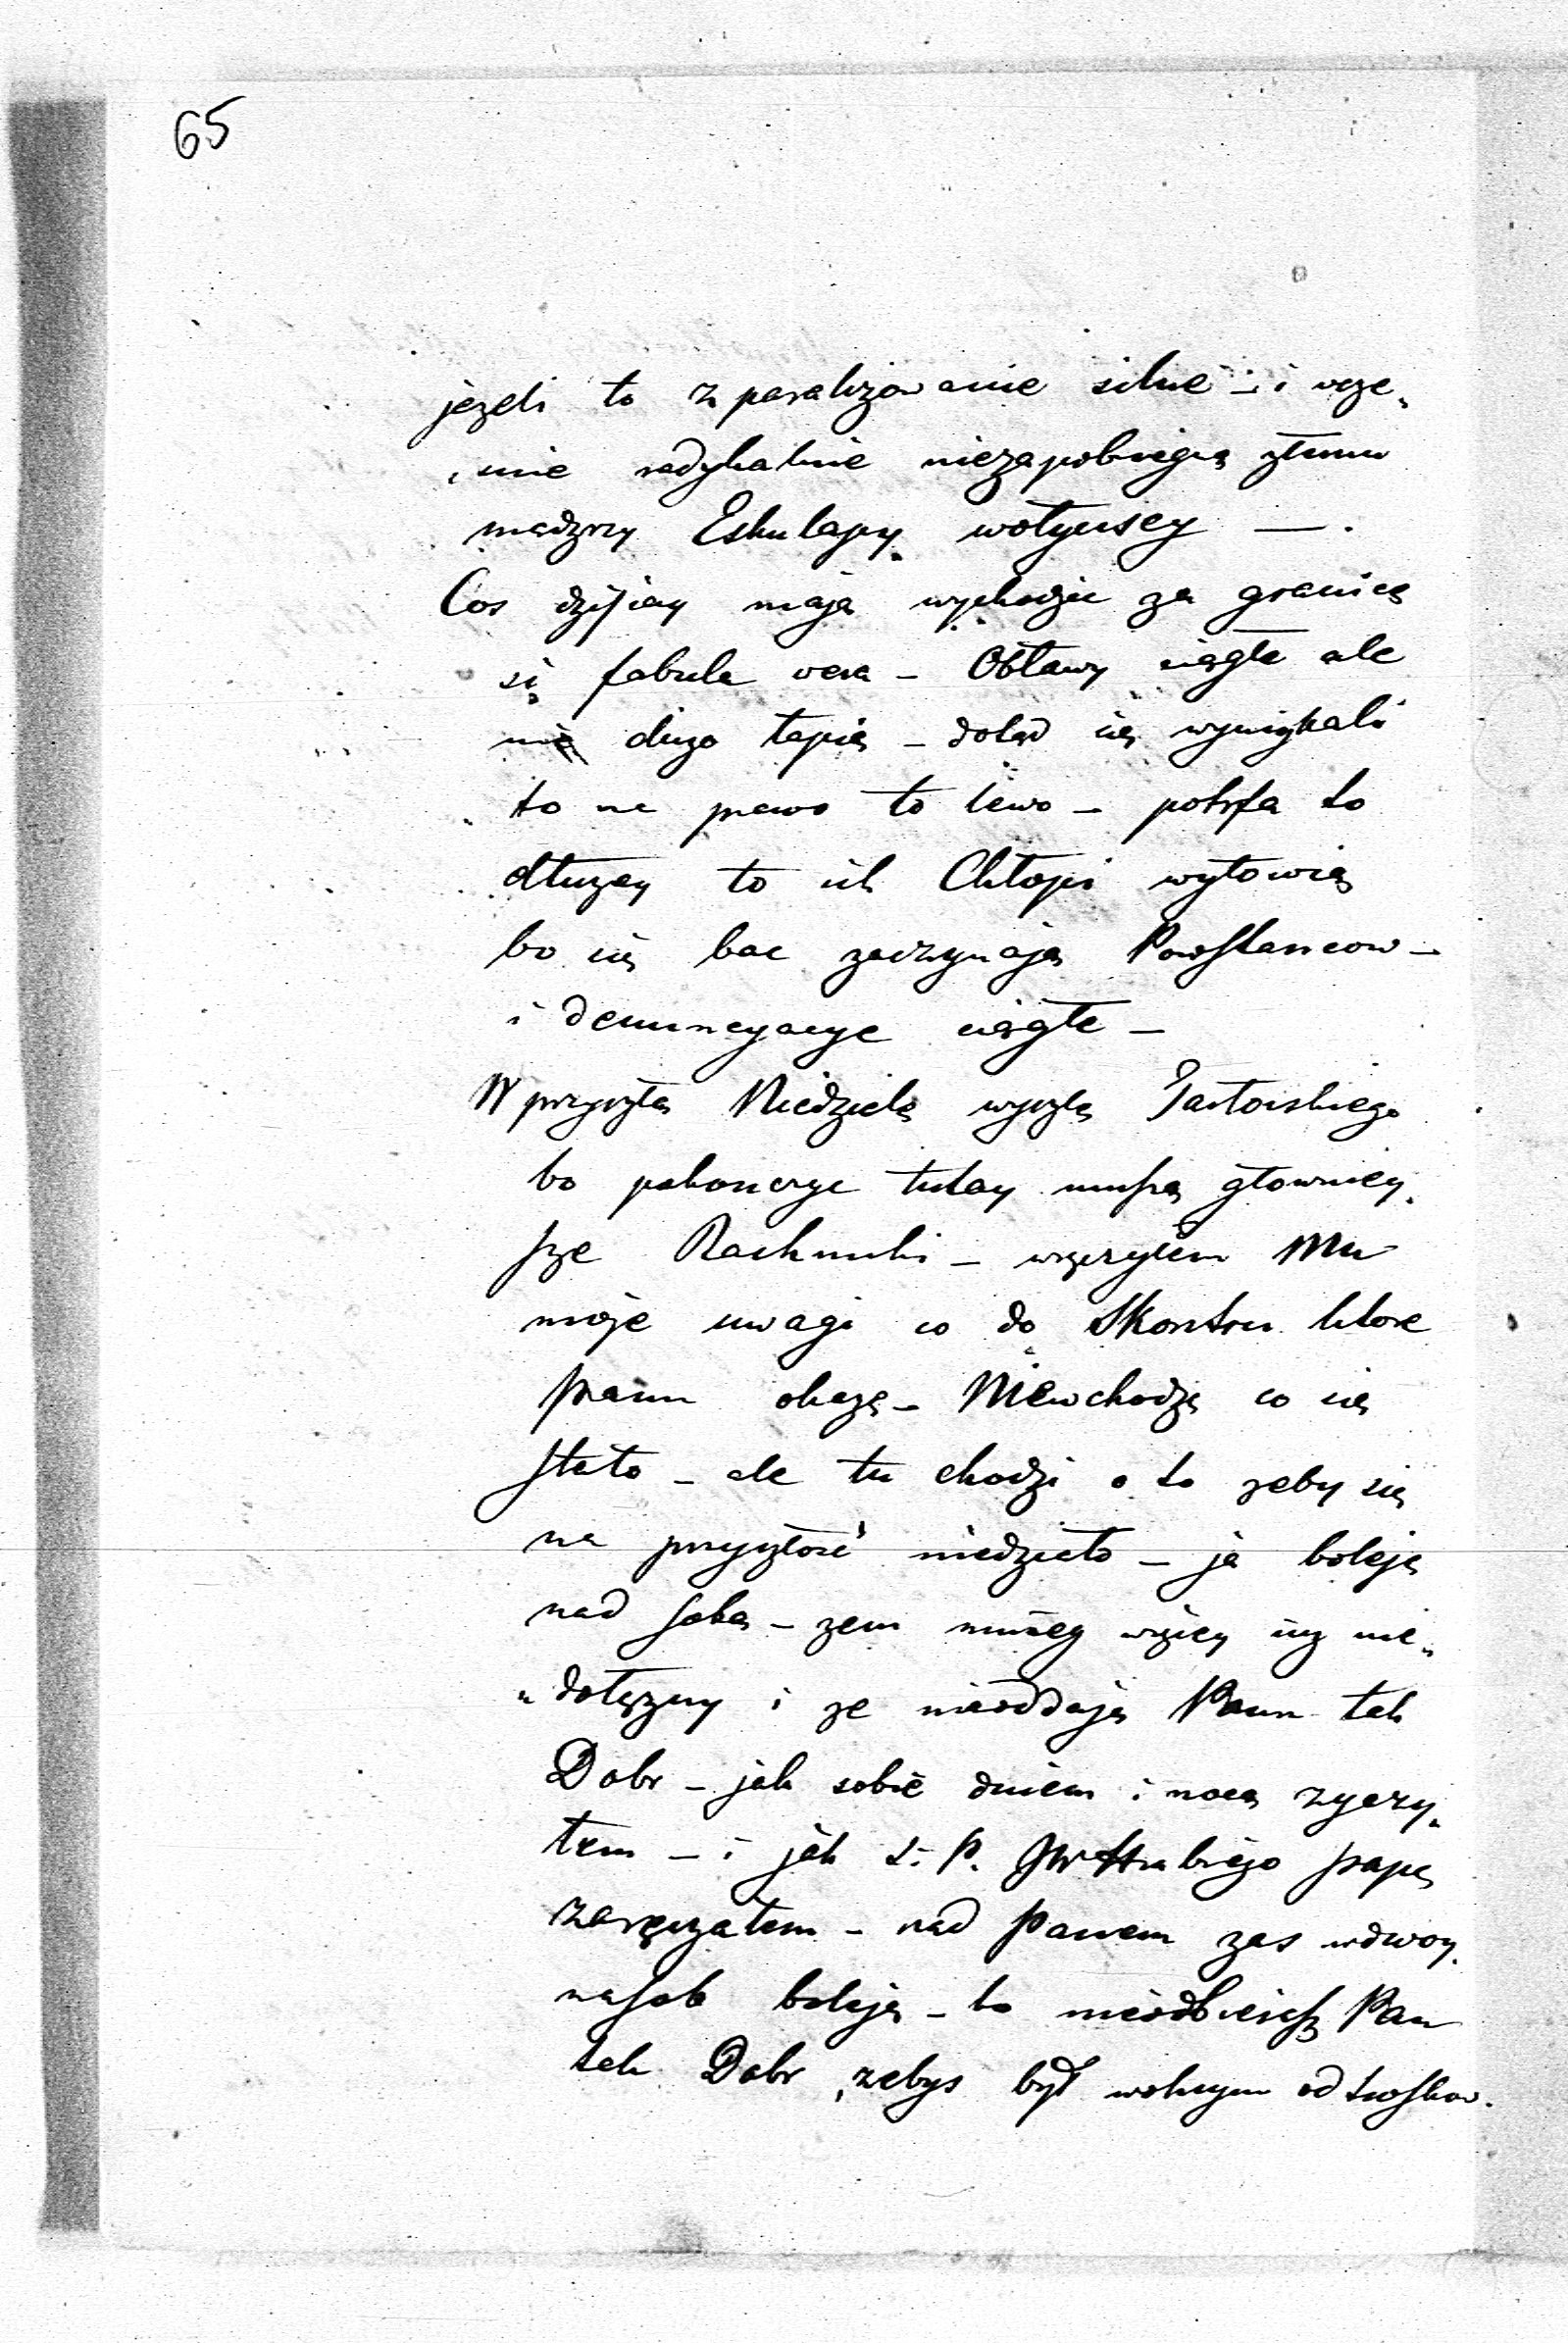 65
jezeli to zparalizowanie silne – i wcze„
„snie radykalnie niezapobiegną złemu
madzrzy Eskulapy wołynscy —.
Cos dzisiay mają wychodzic za granicę
si fabula vera – Obławy ciągłe ale
nie duzo łapią – dotąd się wymykali
to na prawo to lewo – potrfa to
dłuzey to ich Chłopi wyłowią
bo się bac zaczynają Powstancow –
i denuncyacye ciągłe –
W przyszłą Niedzielę wyszlę Jastorskiego
bo pokonczyc tutay muszę głowniey„
sze Rachunki – wręczyłem Mu
moje uwagi co do Skontru ktore
panu okazę – Niewchodzę co się
stało – ale tu chodzi o to zeby się
na przyszłość niedziało – ja boleję
nad sobą – zem mniey więcey iuz nie„
„dołęzny i ze nieoddaję Panu tak
Dobr – jak sobie dniem i nocą zyczy„
łem – i jak S. P. JW Hrabiego papę
zaręczałem – nad Panem zas wdwoy
nasob boleję – to nieodbierasz Pan
tak Dobr, zebys był wolnym od troskow.